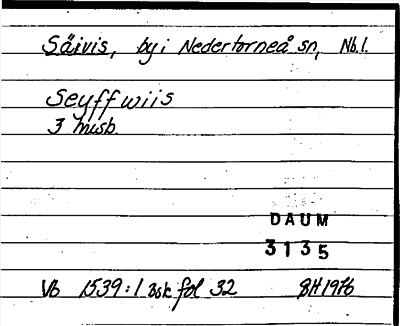 Säivis, by i Nedertorneå sn, Nb.l.
Seyffwiis
3 misb.
DAUM
3135
Vb 1539:1 bsk fol 32 BH 1976